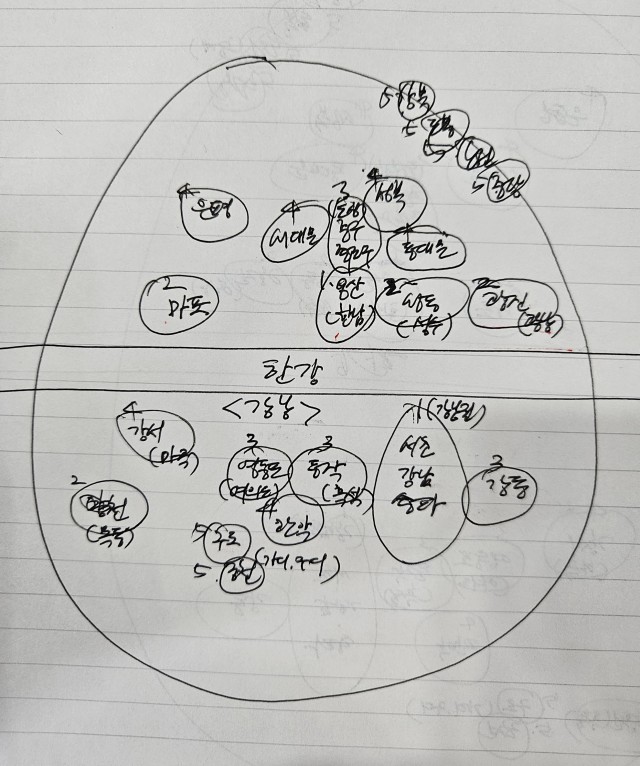 5 강북
5 도봉
5 노원
5 중랑
4
은평
4
서대문
3
종로
중구
4
성북
4
동대문
2
마포
1
용산
(한남)
2
성동
(성수)
2
광진
(광장)
한강
<강남>
4
강서
(마곡)
2
양천
(목동)
3
영등포
(여의도)
3
동작
(흑석)
4
관악
5 구로
5 금천 (가디.구디)
1 (강남권)
서초
강남
송파
3
강동